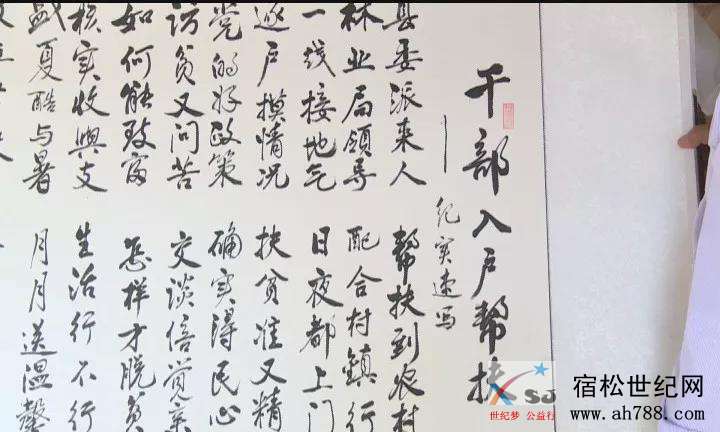 干部入户帮扶
——纪实速写
县委派来人 帮扶到农村
林业局領导 配合村鎮行
一线接地气 日夜都上门
逐户摸情况 扶贫准又精
党的好政策 确实得民心
访贫又问苦 交谈倍觉亲
如何能致富 怎样才脱贫
核实收與支 生活行不行
盛夏酷与暑 月月送温馨
世纪梦 公益行
宿松世纪网
www.ah788.com